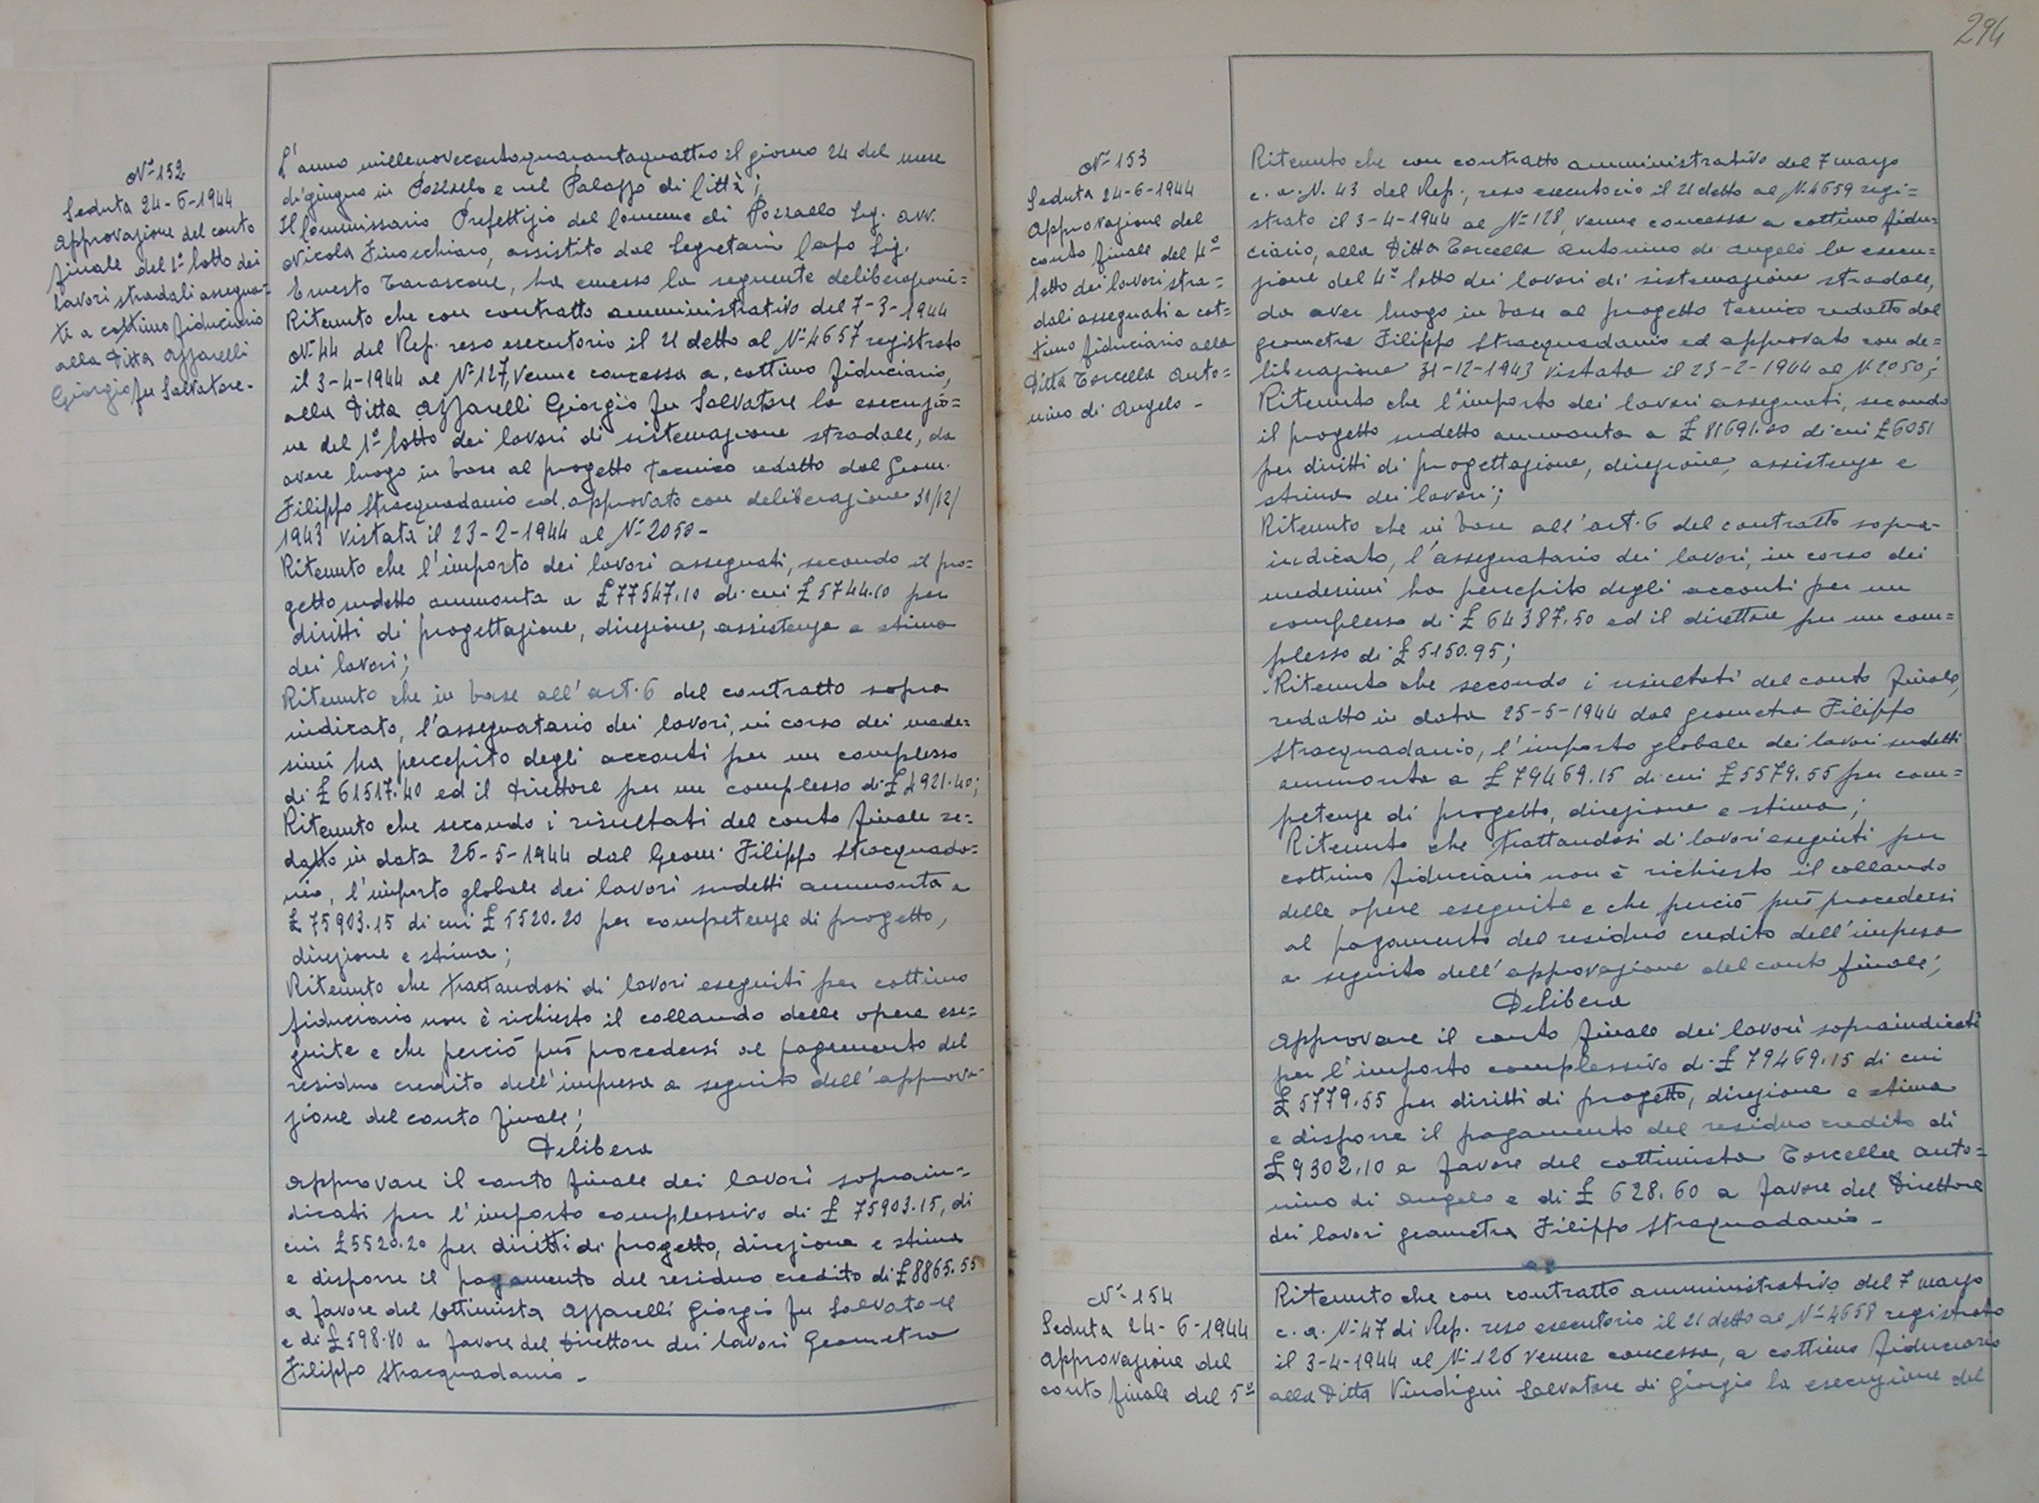 294
Nº 152
Seduta 24-6-1944
Approvazione del conto
finale del 1º lotto dei
lavori stradali assegna-
ti a cottimo fiduciario
alla Ditta Azzarelli
Giorgio fu Salvatore.
L'anno millenovecentoquarantaquattro il giorno 24 del mese
di giugno in Pozzallo e nel Palazzo di Città;
Il Commissario Prefettizio del Comune di Pozzallo Sig. Avv.
Nicola Finocchiaro, assistito dal Segretario Capo Sig.
Ernesto Tarascone, ha emesso la seguente deliberazione=
Ritenuto che con contratto amministrativo del 7-3-1944
Nº 44 del Rep. reso esecutorio il 21 detto al Nº 4657 registrato
il 3-4-1944 al Nº 127, venne concessa a cottimo fiduciario,
alla Ditta Azzarelli Giorgio fu Salvatore la esecuzio=
ne del 1º lotto dei lavori di sistemazione stradale, da
avere luogo in base al progetto tecnico redatto dal Geom.
Filippo Stracquadanio ed approvato con deliberazione 31/12/
1943 vistata il 23-2-1944 al Nº 2050-
Ritenuto che l'importo dei lavori assegnati, secondo il pro=
getto sudetto ammonta a £ 77547.10 di cui £ 5744.10 per
diritti di progettazione, direzione, assistenza e stima
dei lavori;
Ritenuto che in base all'art. 6 del contratto sopra
indicato, l'assegnatario dei lavori, in corso dei mede=
simi ha percepito degli acconti per un complesso
di £ 61517.40 ed il Direttore per un complesso di £ 4921.40;
Ritenuto che secondo i risultati del conto finale re=
datto in data 26-5-1944 dal Geom. Filippo Stracquada=
nio, l'importo globale dei lavori sudetti ammonta a
£ 75903.15 di cui £ 5520.20 per competenze di progetto,
direzione e stima;
Ritenuto che trattandosi di lavori eseguiti per cottimo
fiduciario non è richiesto il collaudo delle opere ese=
guite e che perciò può procedersi al pagamento del
residuo credito dell'impresa a seguito dell'approva-
zione del conto finale;
Delibera
Approvare il conto finale dei lavori soprain=
dicati per l'importo complessivo di £ 75903.15, di
cui £ 5520.20 per diritti di progetto, direzione e stima
e disporre il pagamento del residuo credito di £ 8865.55
a favore del Cottimista Azzarelli Giorgio fu Salvatore
e di £ 598.80 a favore del Direttore dei lavori Geometra
Filippo Stracquadanio.-
Nº 153
Seduta 24-6-1944
Approvazione del
conto finale del 4º
lotto dei lavori stra=
dali assegnati a cot=
timo fiduciario alla
Ditta Torcella Anto=
nino di Angelo -
Ritenuto che con contratto amministrativo del 7 marzo
c.a. N. 43 del Rep., reso esecutorio il 21 detto al N. 4659 regi=
strato il 3-4-1944 al Nº 128, venne concessa a cottimo fidu=
ciario, alla Ditta Torcella Antonino di Angelo la esecu=
zione del 4º lotto dei lavori di sistemazione stradale,
da aver luogo in base al progetto tecnico redatto dal
geometra Filippo Stracquadanio ed approvato con de=
liberazione 31-12-1943 vistata il 23-2-1944 al N. 2050;
Ritenuto che l'importo dei lavori assegnati, secondo
il progetto sudetto ammonta a £ 81691.00 di cui £ 6051
per diritti di progettazione, direzione, assistenza e
stima dei lavori;
Ritenuto che in base all'art. 6 del contratto sopra-
indicato, l'assegnatario dei lavori, in corso dei
medesimi ha percepito degli acconti per un
complesso di £ 64387.50 ed il direttore per un com=
plesso di £ 5150.95;
Ritenuto che secondo i risultati del conto finale,
redatto in data 25-5-1944 dal geometra Filippo
Stracquadanio, l'importo globale dei lavori sudetti
ammonta a £ 79469.15 di cui £ 5579.55 per com=
petenze di progetto, direzione e stima;
Ritenuto che trattandosi di lavori eseguiti per
cottimo fiduciario non è richiesto il collaudo
delle opere eseguite e che perciò può procedersi
al pagamento del residuo credito dell'impresa
a seguito dell'approvazione del conto finale;
Delibera
Approvare il conto finale dei lavori sopraindicati
per l'importo complessivo di £ 79469.15 di cui
£ 5779.55 per diritti di progetto, direzione e stima
e disporre il pagamento del residuo credito di
£ 9302.10 a favore del cottimista Torcella Anto=
nino di Angelo e di £ 628.60 a favore del Direttore
dei lavori geometra Filippo Stracquadanio -
Nº 154
Seduta 24-6-1944
Approvazione del
conto finale del 5º
Ritenuto che con contratto amministrativo del 7 marzo
c.a. Nº 47 di Rep. reso esecutorio il 21 detto al Nº 4658 registrato
il 3-4-1944 al Nº 126 venne concessa, a cottimo fiduciario
alla Ditta Vindigni Salvatore di Giorgio la esecuzione del